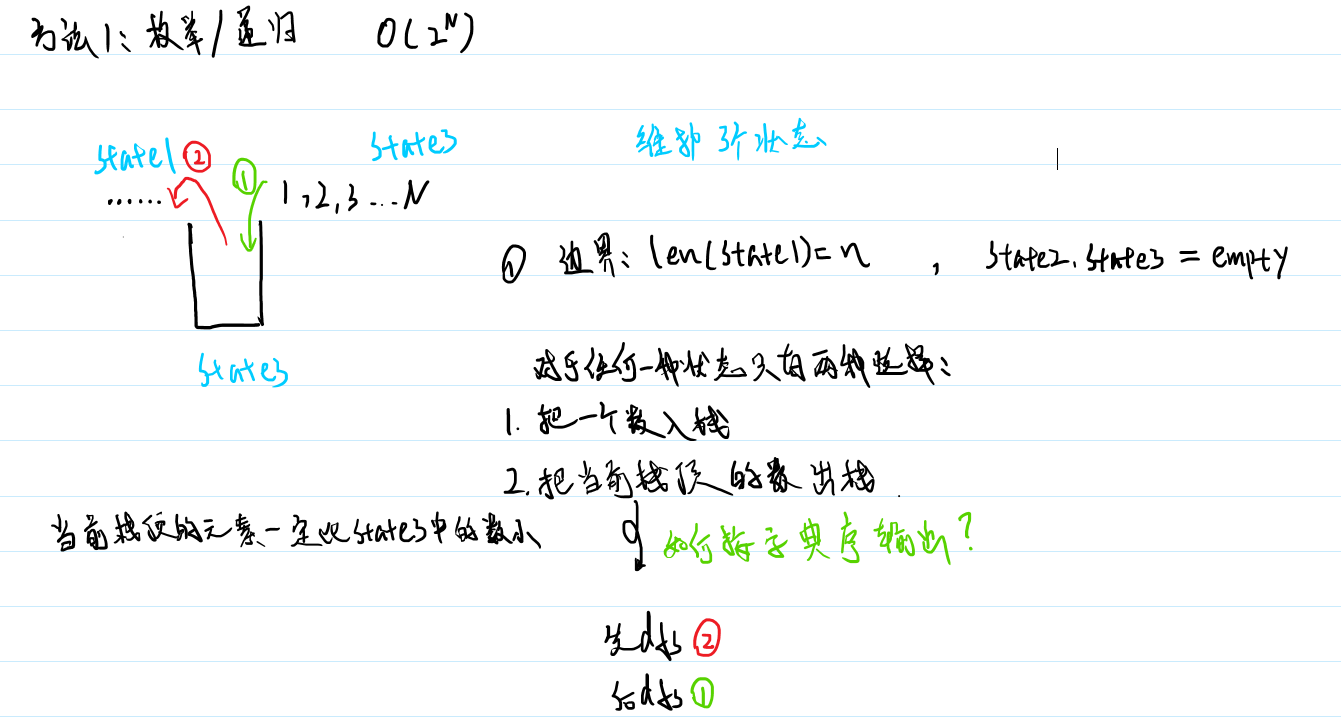 方法1：枚举/递归 O(2^N)
state1 ② ① state3 维护3个状态
...... 1,2,3...N
① 边界：len(state1)=n ，state2.state3 = empty
state3
对于任何一种状态只有两种选择：
1. 把一个数入栈
2. 把当前栈顶的数出栈.
当前栈顶的元素一定比state3中的数小
如何按字典序输出？
先dfs ②
后dfs ①